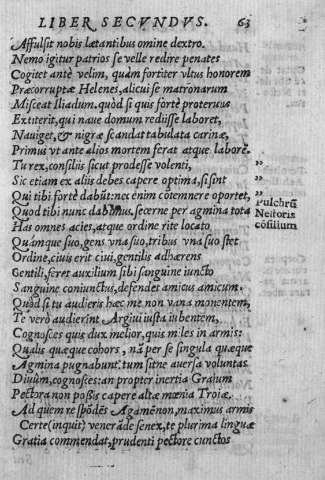 LIBER SECVNDVS. 63
Affulsit nobis lætantibus omine dextro.
Nemo igitur patrios se velle redire penates
Cogitet ante velim, quàm fortiter vltus honorem
Præcorruptæ Helenes, alicui se matronarum
Misceat Iliadum. quòd si quis fortè proteruus
Extiterit, qui naue domum rediisse laboret,
Nauiget, & nigræ scandat tabulata carinæ,
Primus vt ante alios mortem ferat atque laborē.
Tu rex, consiliis sicut prodesse volenti,
Sic etiam ex aliis debes capere optima, si sint
Qui tibi fortè dabūt: nec enim cōtemnere oportet,
Quod tibi nunc dabimus, secerne per agmina tota
Has omnes acies, atque ordine rite locato
Quámque suo, gens vna suo, tribus vna suo stet
Ordine, ciuis erit ciui, gentilis adhærens
Gentili, feret auxilium sibi sanguine iuncto
Sanguine coniunctus, defendet amicus amicum.
Quòd si tu audieris hæc me non vana monentem,
Te verò audierint Argiui iusta iubentem,
Cognosces quis dux melior, quis miles in armis:
Qualis quæque cohors, nā per se singula quæque
Agmina pugnabunt: tum sitne auersa voluntas
Diuûm, cognosces: an propter inertia Graiûm
Pectora non possis capere altæ mœnia Troiæ.
Ad quem respōdēs Agamēnon, maximus armis
Certe (inquit) venerāde senex, te plurima linguæ
Gratia commendat, prudenti pectore cunctos
”
”
”
Pulchrū
Nestoris
cōsilium